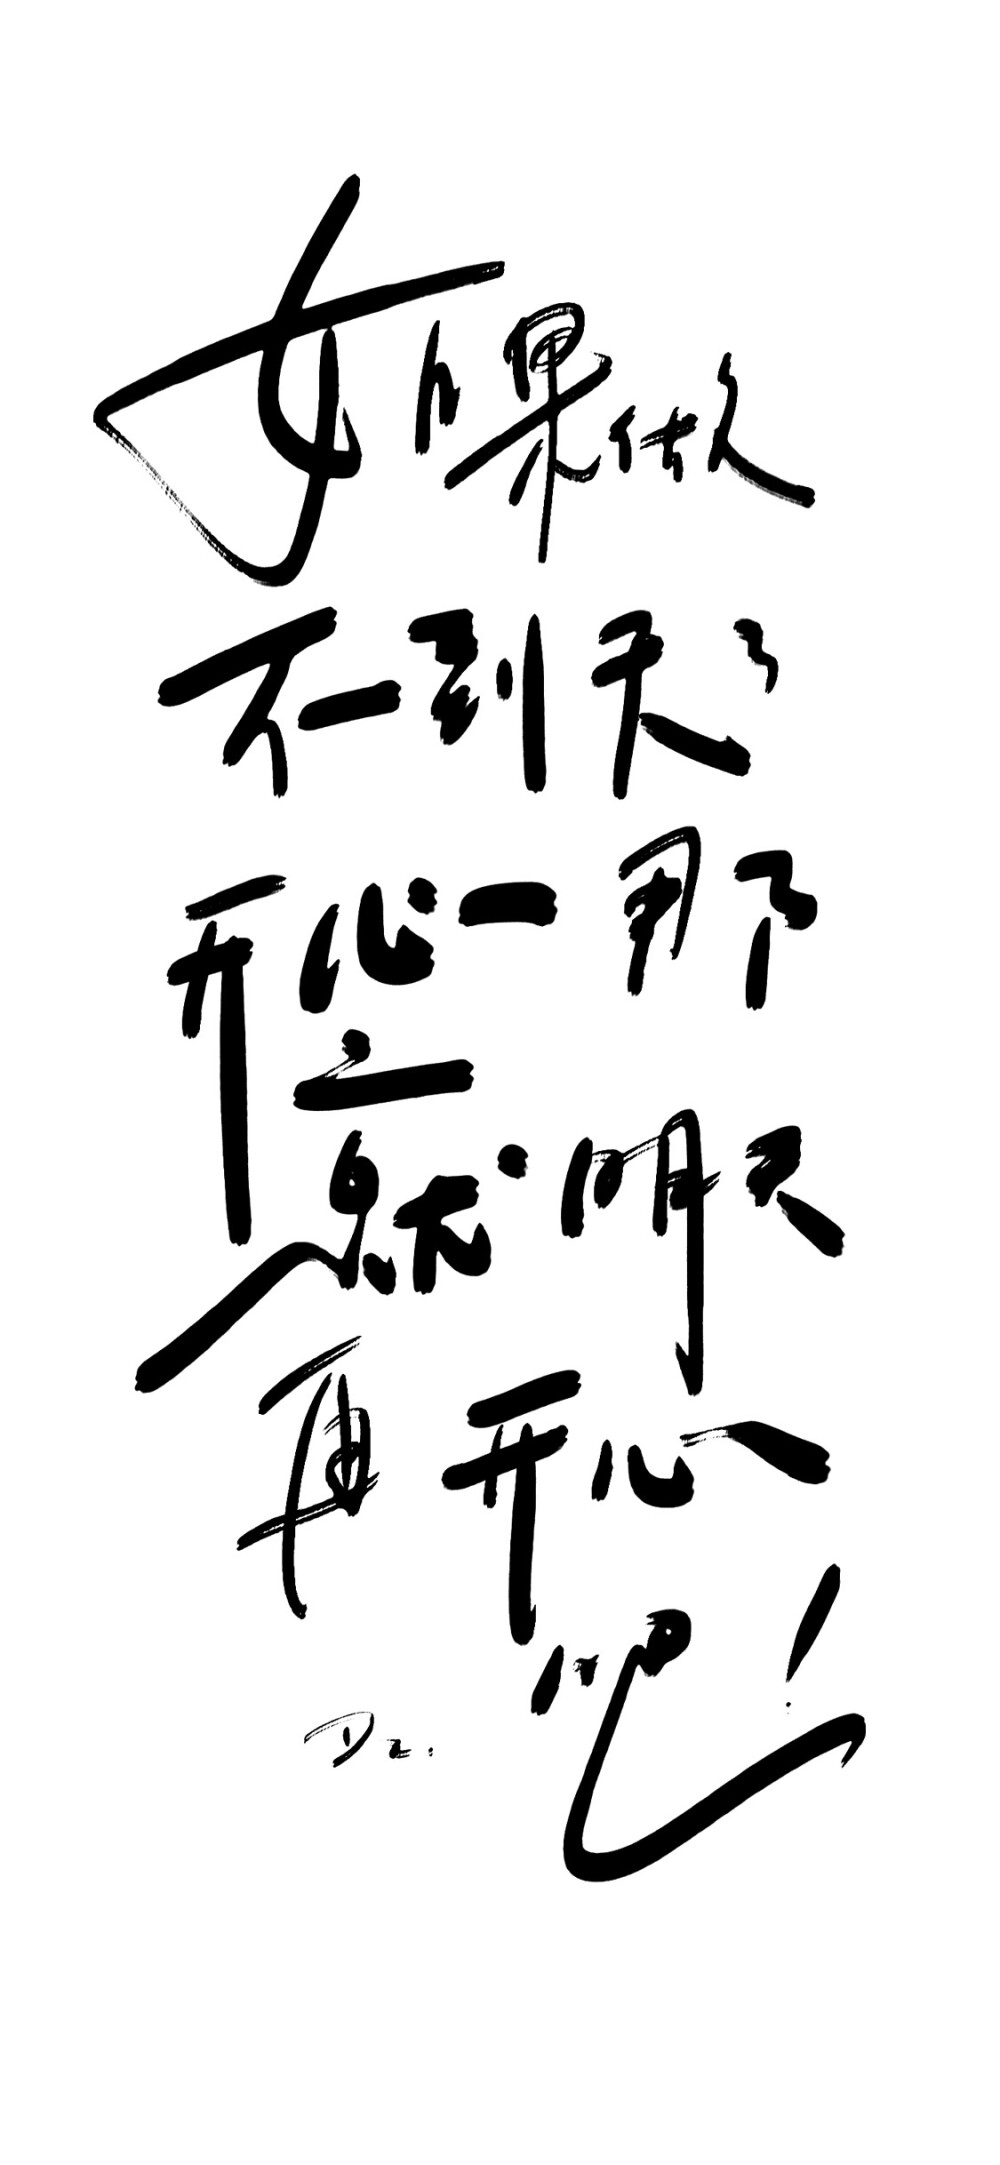 如果做
不到天々
开心一那
就明天
再开心
吧！
Dz.